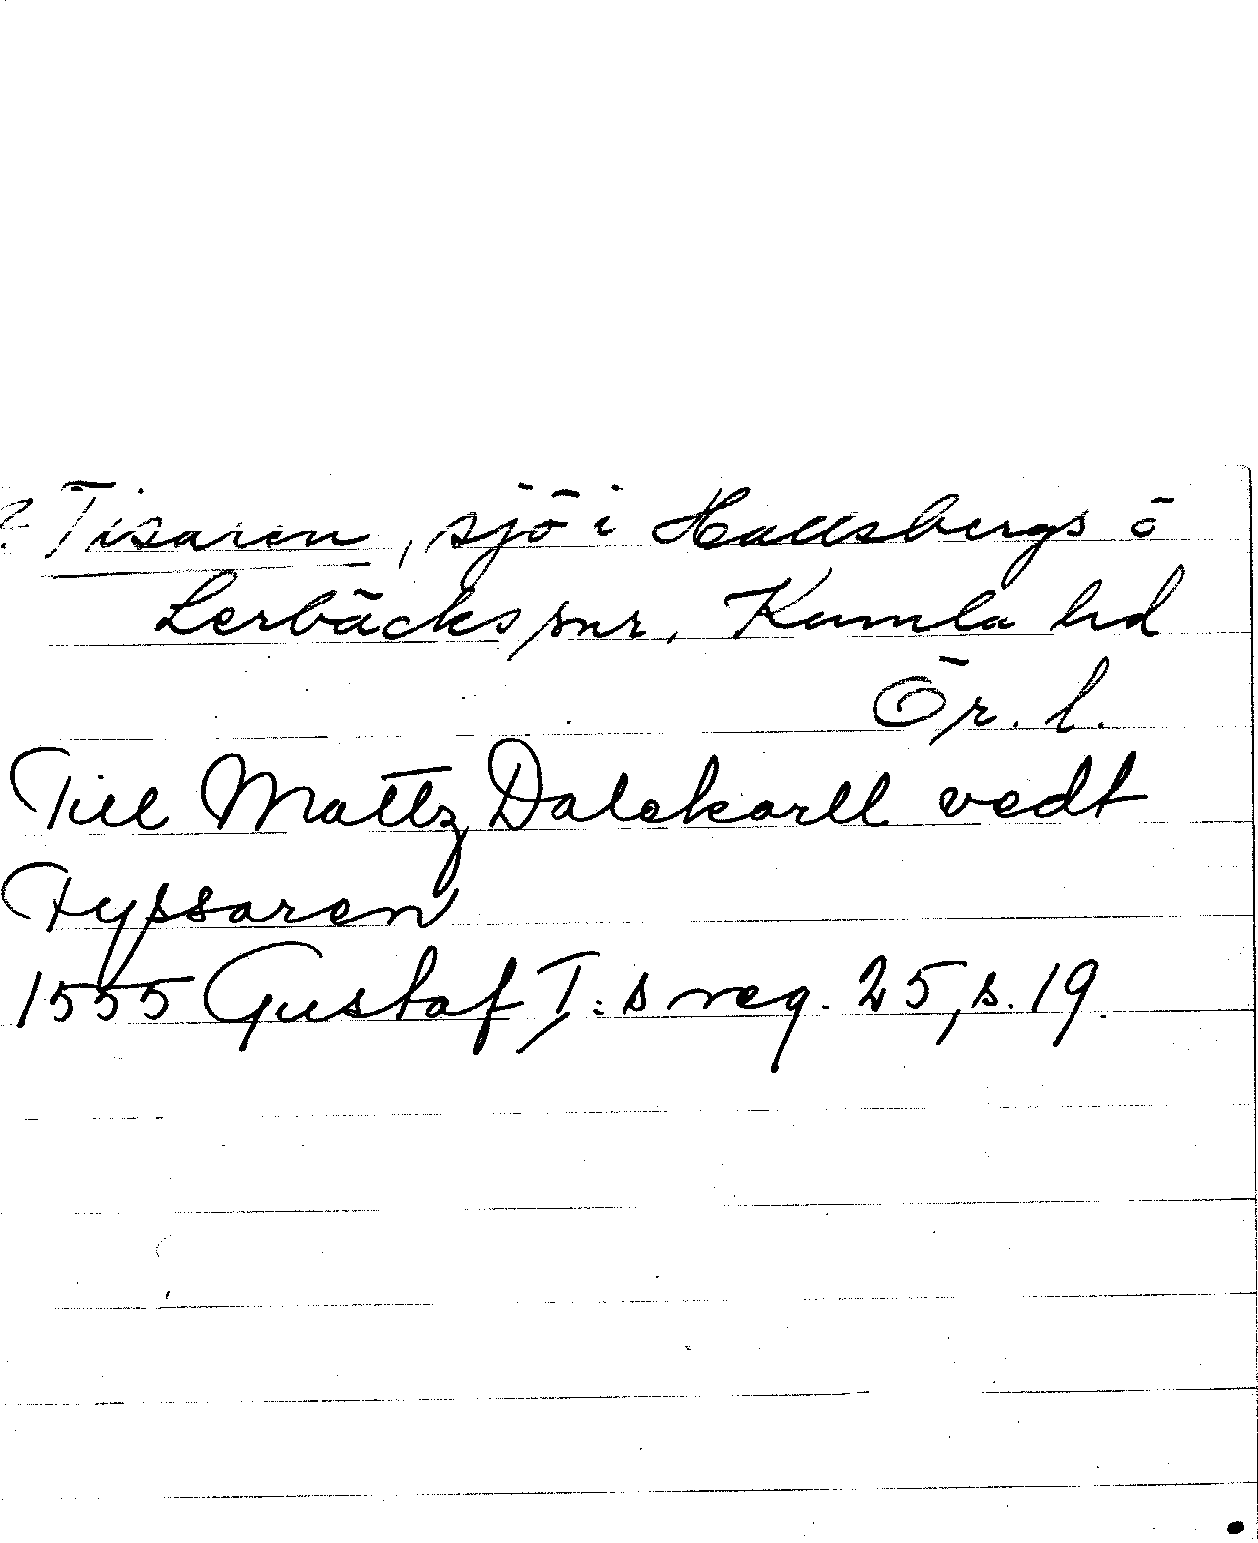 ? Tisaren, sjö i Hallsbergs o
Lerbäcks snr, Kumla hd
Ör. l.
Till Mattz Dalekarll vedt
Tyssaren
1555 Gustaf I:s reg. 25, s. 19.